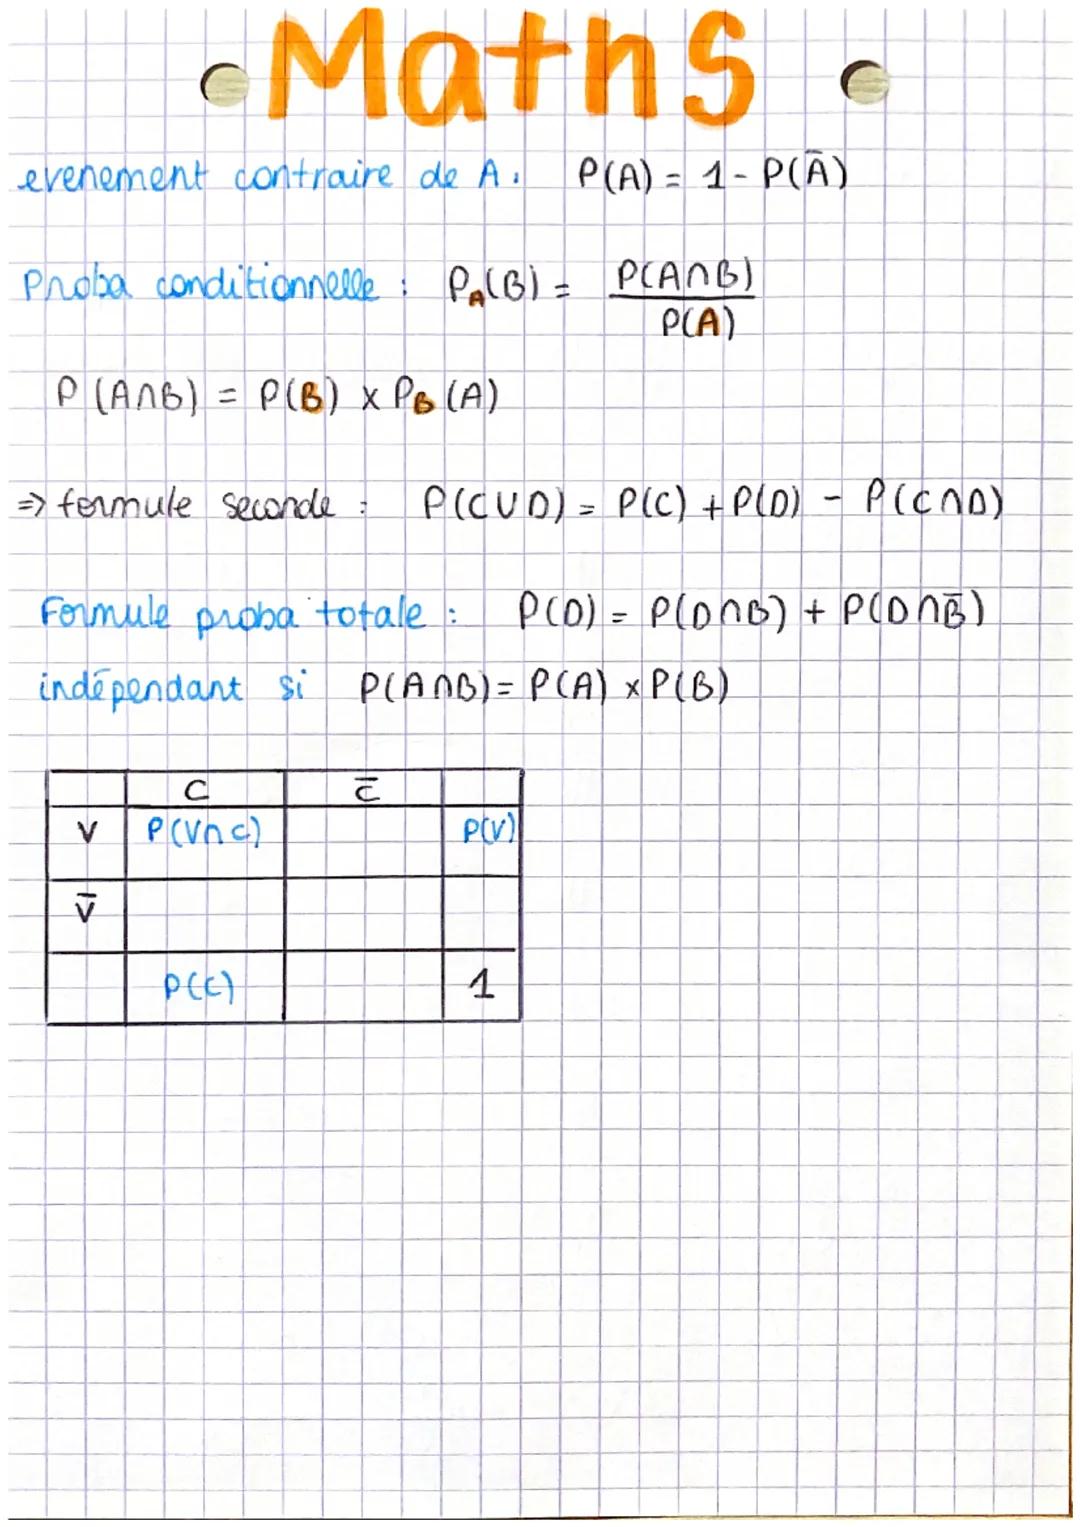 Maths
evenement contraire de A. P(A) = 1 - P(Ā)
Proba conditionnelle : P_A(B) = P(A∩B) / P(A)
P(A∩B) = P(B) x P_B(A)
=> formule seconde : P(C∪D) = P(C) + P(D) - P(C∩D)
Formule proba totale : P(D) = P(D∩B) + P(D∩B̄)
indépendant si P(A∩B) = P(A) x P(B)
C C̄
V P(V∩C) P(V)
V̄
P(C) 1